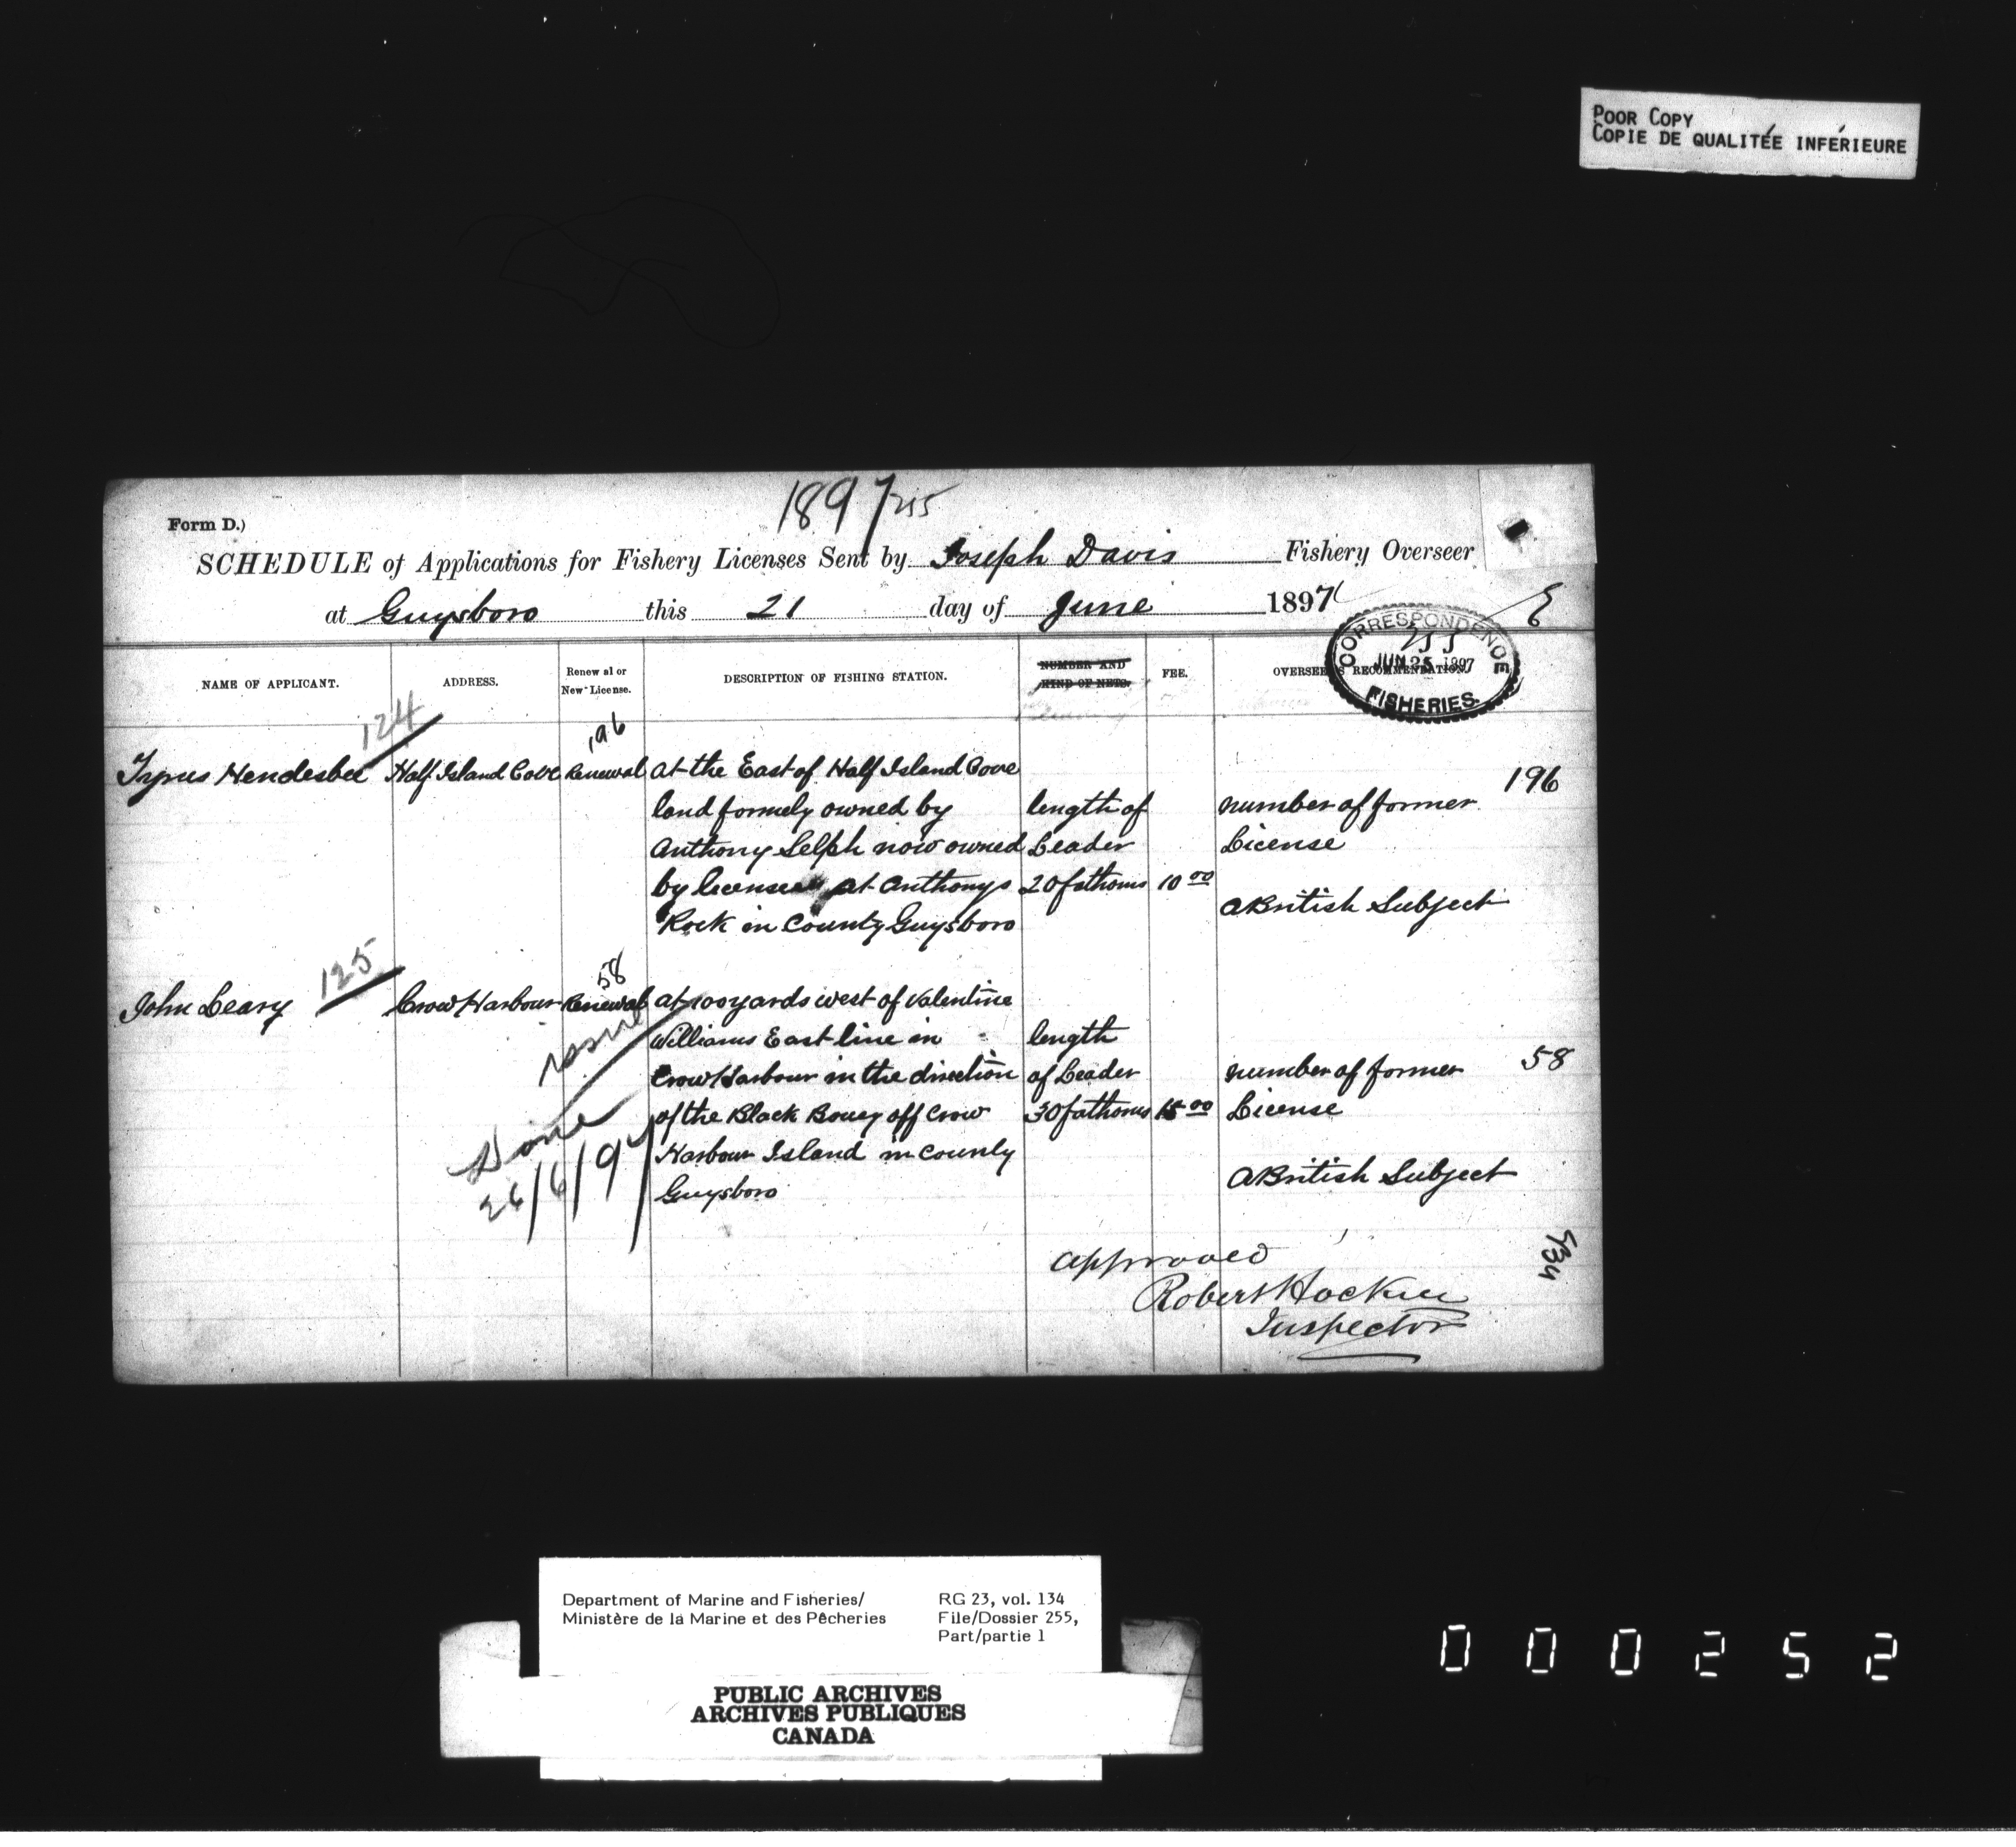 POOR COPY
COPIE DE QUALITÉE INFÉRIEURE
1897
Form D.)
SCHEDULE of Applications for Fishery Licenses Sent by Joseph Davis Fishery Overseer
at Guysboro this 21 day of June 1897
CORRESPONDENCE
255
JUN 25 1897
FISHERIES.
NAME OF APPLICANT. ADDRESS. Renewal or New License. DESCRIPTION OF FISHING STATION. NUMBER AND KIND OF NETS. FEE. OVERSEER'S RECOMMENDATION.
124 196
Hendesbee Half Island Cove Renewal at the East of Half Island Cove 196
land formely owned by length of number of former
Anthony Selph now owned Leader License
by licensee at Anthonys 20 fathoms 10 00
Rock in County Guysboro a British Subject
125 58
John Leary Crow Harbour Renewal at 100 yards west of Valentine
Williams East line in length
Crow Harbour in the direction of Leader number of former 58
of the Black Bouey off Crow 30 fathoms 15 00 License
Harbour Island in County
Guysboro a British Subject
issue
Done
26/6/97
approved
Robert Hockin
Inspector
Department of Marine and Fisheries/
Ministère de la Marine et des Pêcheries
RG 23, vol. 134
File/Dossier 255,
Part/partie 1
PUBLIC ARCHIVES
ARCHIVES PUBLIQUES
CANADA
000252